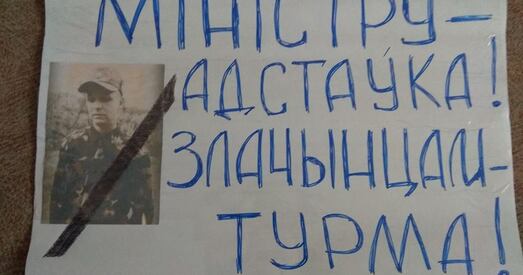 МІНІСТРУ-
АДСТАЎКА!
ЗЛАЧЫНЦАМ-
ТУРМА!